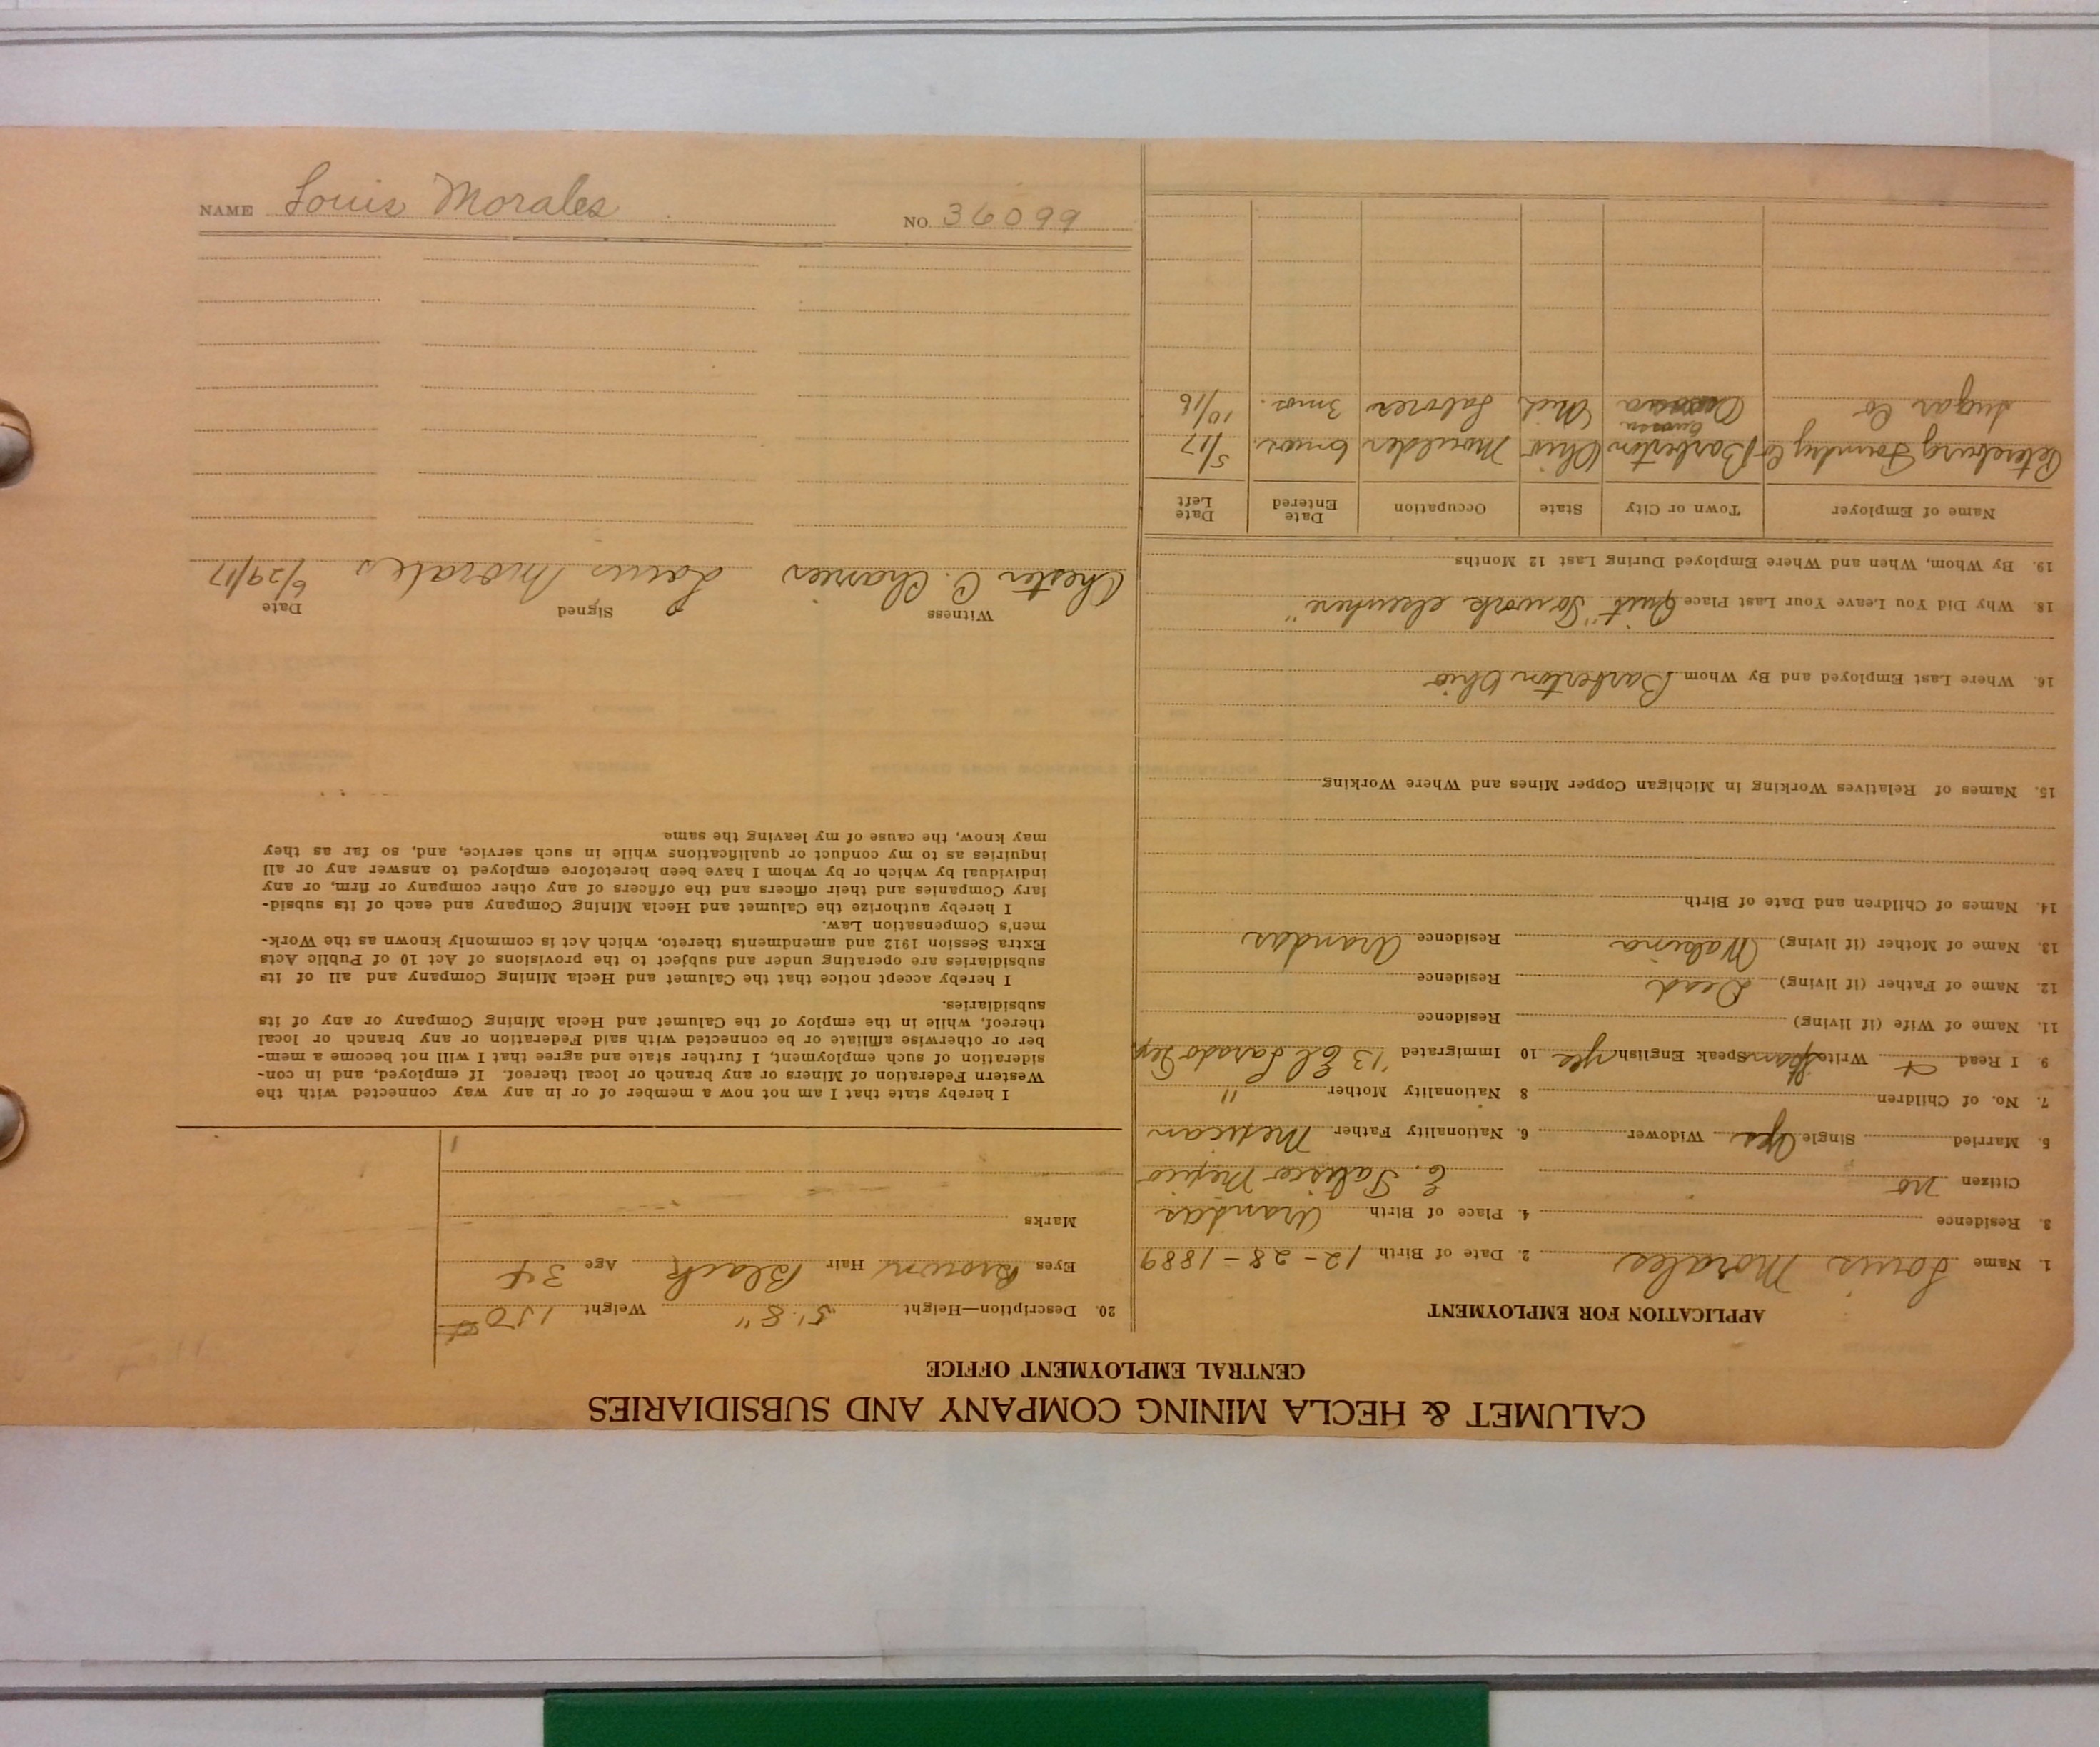 CALUMET & HECLA MINING COMPANY AND SUBSIDIARIES
CENTRAL EMPLOYMENT OFFICE
APPLICATION FOR EMPLOYMENT
1. Name Louis Morales 2. Date of Birth 12-28-1889
3. Residence 4. Place of Birth Arandas
Citizen no E. Jalisco Mexico
5. Married Single Yes Widower 6. Nationality Father Mexican
7. No. of Children 8 Nationality Mother "
9. I Read + Write Speak English 10 Immigrated '13 El Tex
11. Name of Wife (if living) Residence
12. Name of Father (if living) Dead Residence
13. Name of Mother (if living) Residence Arandas
14. Names of Children and Date of Birth
15. Names of Relatives Working in Michigan Copper Mines and Where Working
16. Where Last Employed and By Whom Barberton Ohio
18. Why Did You Leave Your Last Place Quit "To work elsewhere"
19. By Whom, When and Where Employed During Last 12 Months
Name of Employer Town or City State Occupation Date Entered Date Left
Petersburg Foundry Co Barberton Ohio Moulder 6 mos. 5/17
Owosso
Sugar Co Mich Laborer 3 mos. 10/16
20. Description—Height 5' 8" Weight 150#
Eyes Brown Hair Black Age
Marks
I hereby state that I am not now a member of or in any way connected with the
Western Federation of Miners or any branch or local thereof. If employed, and in con-
sideration of such employment, I further state and agree that I will not become a mem-
ber or otherwise affiliate or be connected with said Federation or any branch or local
thereof, while in the employ of the Calumet and Hecla Mining Company or any of its
subsidiaries.
I hereby accept notice that the Calumet and Hecla Mining Company and all of its
subsidiaries are operating under and subject to the provisions of Act 10 of Public Acts
Extra Session 1912 and amendments thereto, which Act is commonly known as the Work-
men's Compensation Law.
I hereby authorize the Calumet and Hecla Mining Company and each of its subsid-
iary Companies and their officers and the officers of any other company or firm, or any
individual by which or by whom I have been heretofore employed to answer any or all
inquiries as to my conduct or qualifications while in such service, and, so far as they
may know, the cause of my leaving the same
Witness Signed Date
Chester C. Louis Morales 6/29/17
NAME Louis Morales NO. 36099